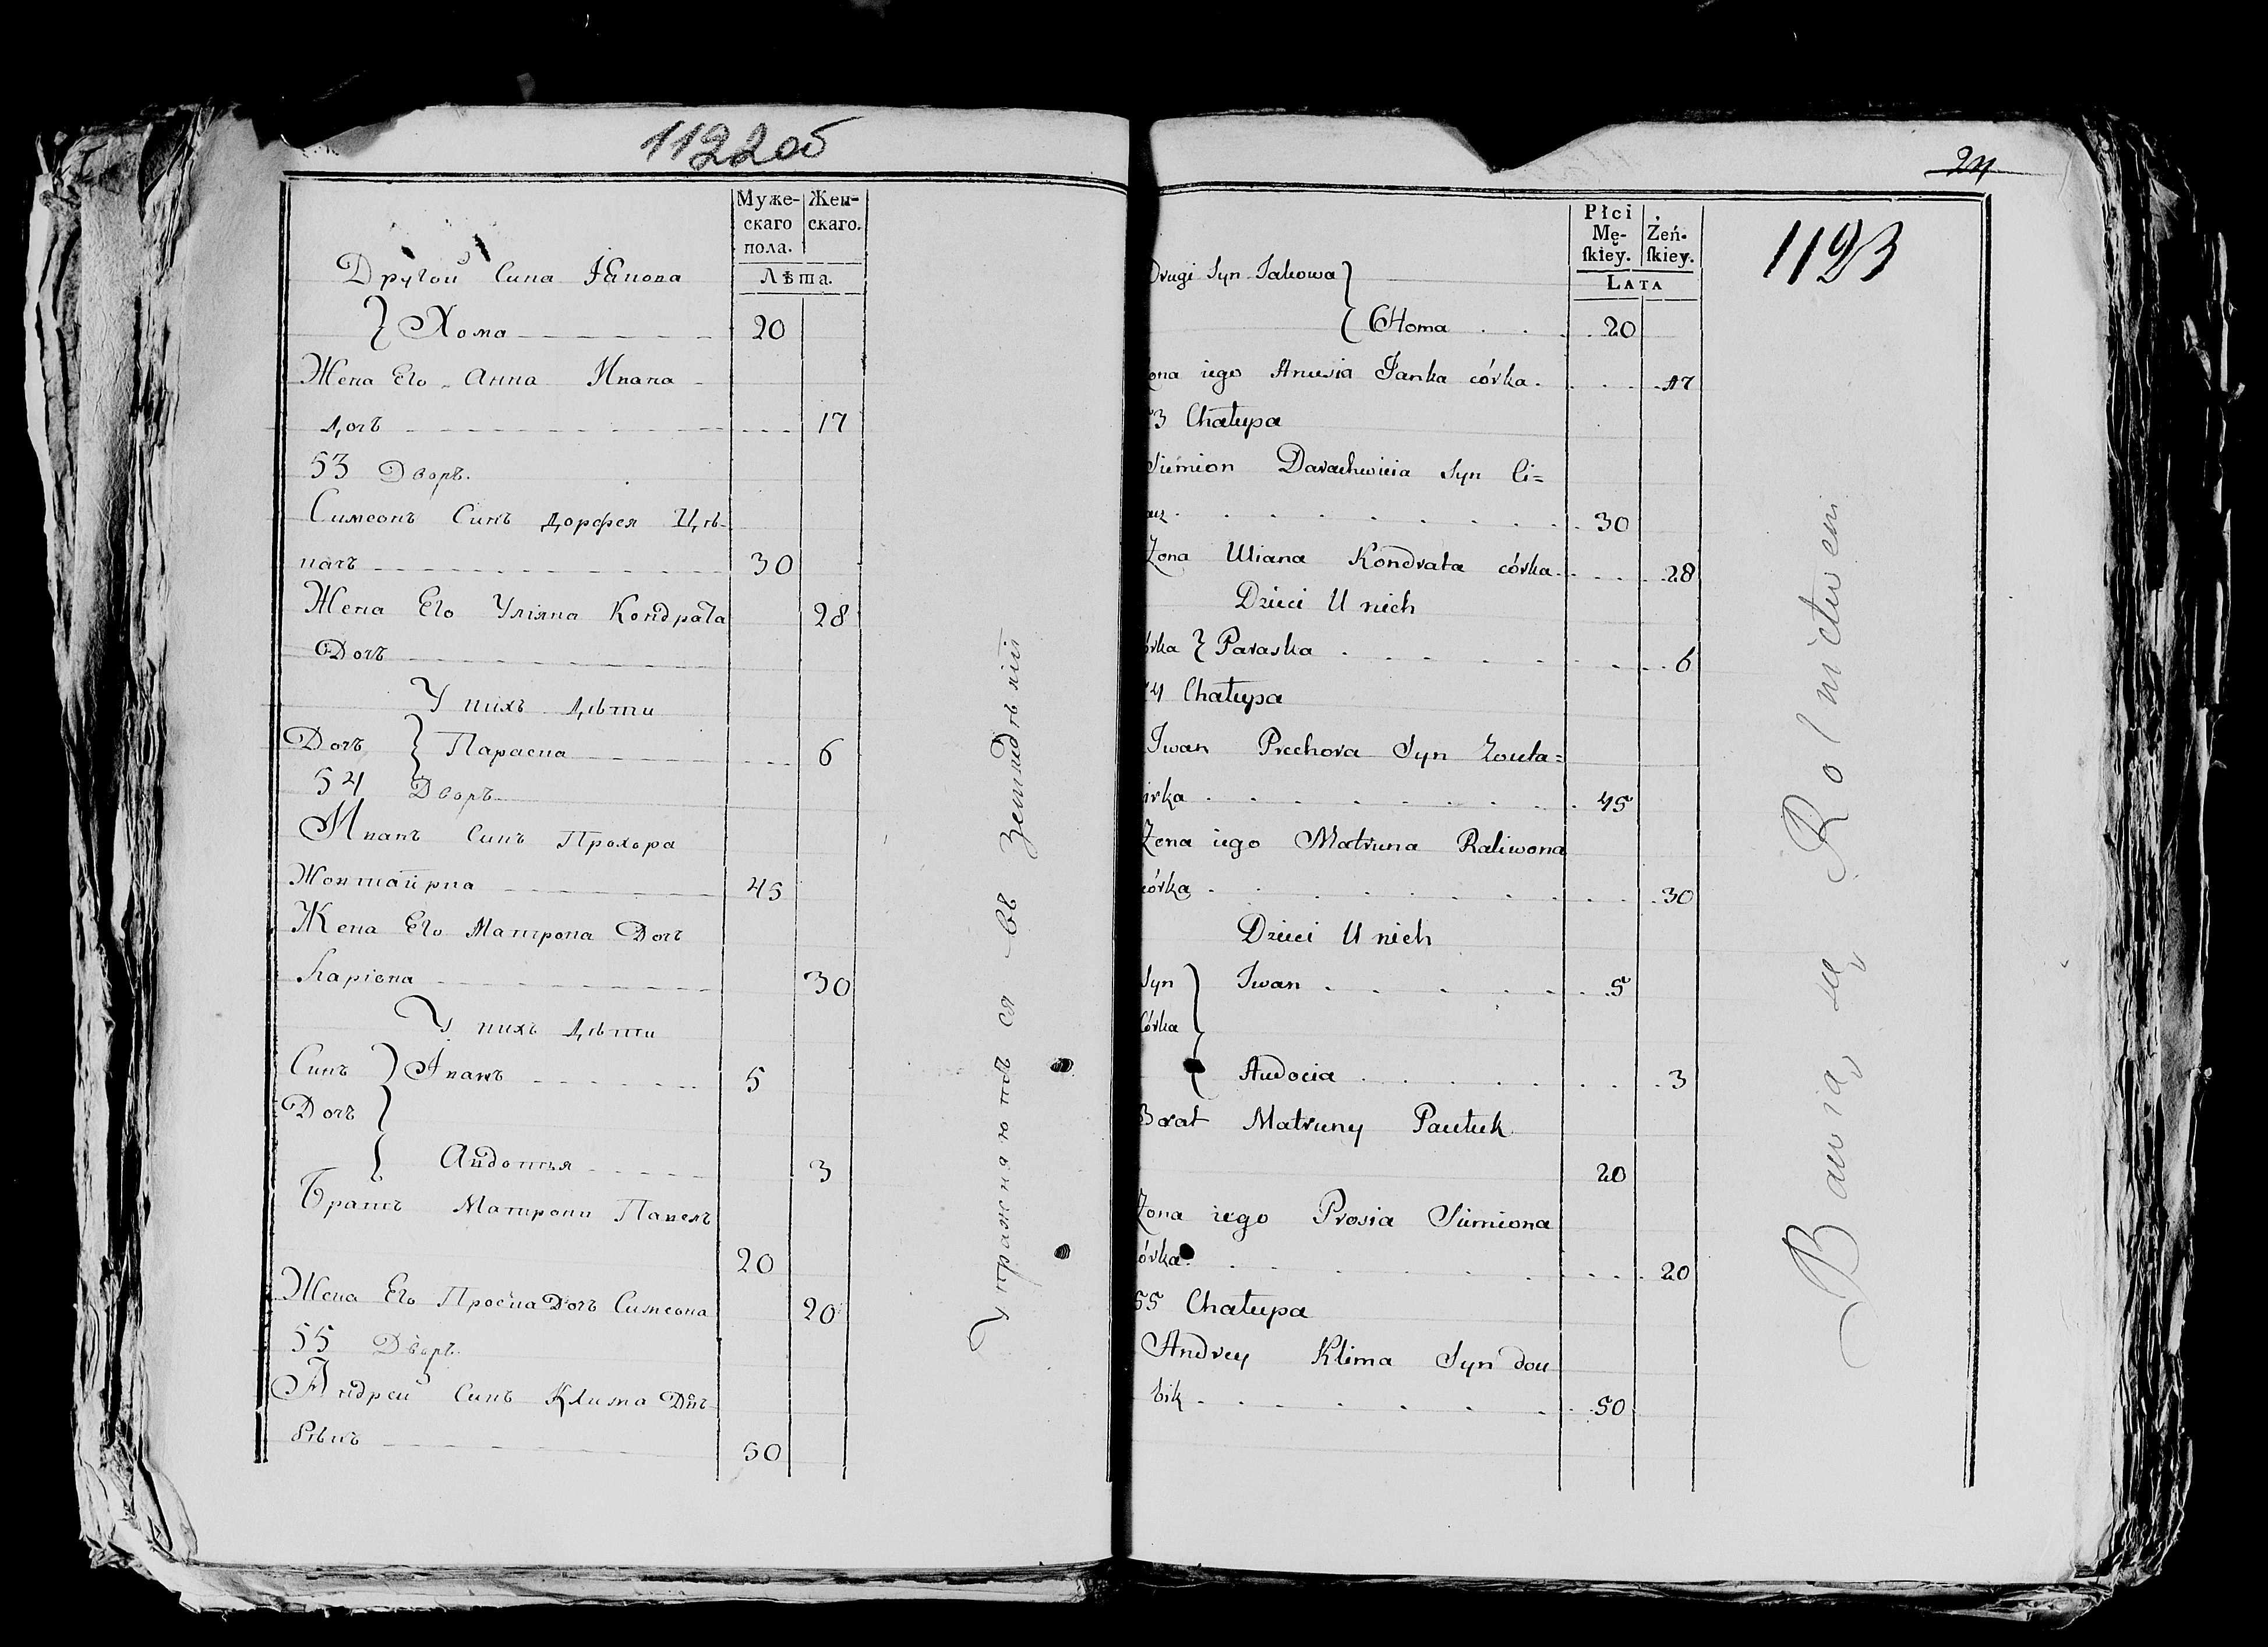 1122 об
Муже- Жен-
скаго скаго.
пола.
Лѣта.
Другой Сина Якова
} Хома 20
Жена Его Анна Ивана
дочъ 17
53 Дворъ.
Симеонъ Синъ Дорофея Ців-
качъ 30
Жена Его Уліяна Кондрата 28
Дочъ
У нихъ дѣти
Дочъ } Параска 6
54 Дворъ
Иванъ Синъ Прохора
Жовтаирка 45
Жена Его Матрона Дочъ
Ларіона 30
У нихъ дѣти
Синъ } Іванъ 5
Дочъ }
Авдотья 3
Братъ Матрони Павелъ
20
Жена Его Проска Дочъ Симеона 20
55 Дворъ
Андрей Синъ Клима
50
Упражняются въ Земледѣліи
24
1123
Płci
Mę- Żeń-
ſkiey. ſkiey.
LATA
Drugi Syn Jakowa }
{ Homa 20
ona iego Anusia Janka córka 17
3 Chałupa
Siemion Darachwieia Syn Ci=
30
Zona Uliana Kondrata córka 28
Dzieci U nich
órka } Paraska 6
4 Chałupa
Iwan Prochora Syn Zowta=
irka 45
Zona iego Matruna Raliwona
córka 30
Dzieci U nich
Syn } Iwan 5
Córka }
Audocia 3
Brat Matruny Pawluk
20
Zona iego Prosia Siemiona
órka 20
55 Chałupa
Andrey Klima Syn dou
bik 50
Bawią się Rolnictwem